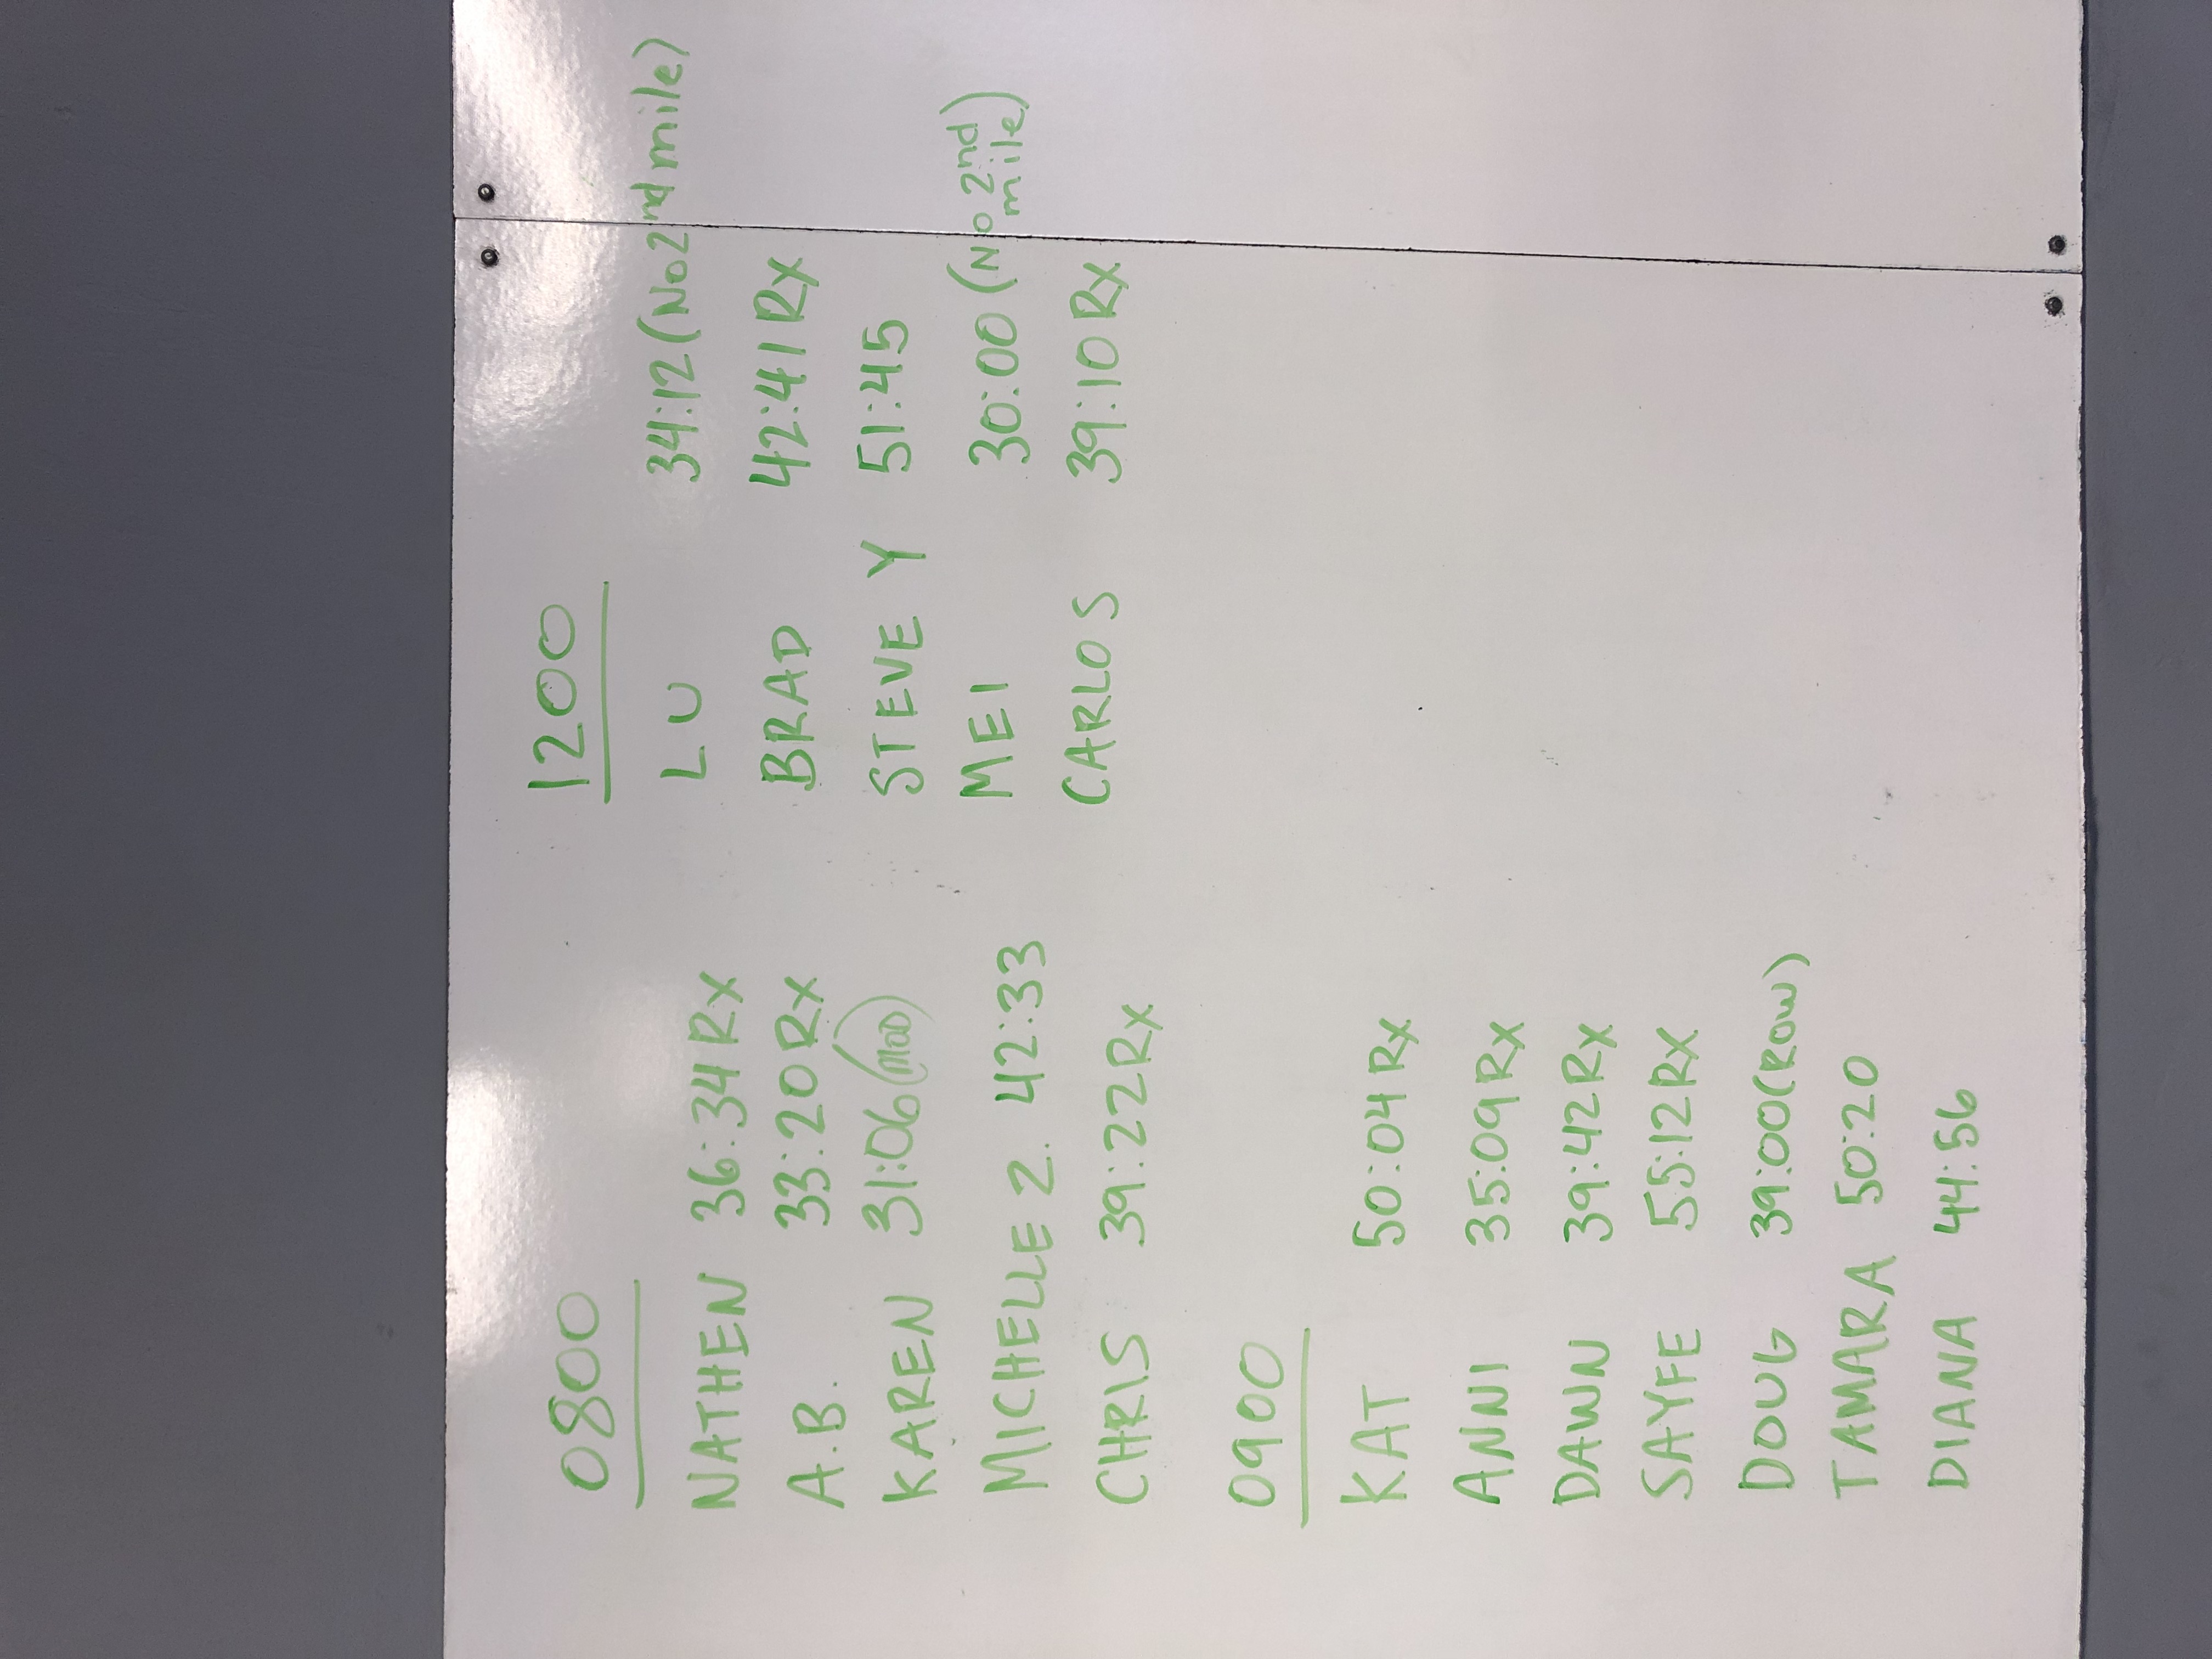 0800
NATHEN 36:34 Rx
A.B. 33:20 Rx
KAREN 31:06 (MOD)
MICHELLE Z. 42:33
CHRIS 39:22 Rx
0900
KAT 50:04 Rx
ANNI 35:09 Rx
DAWN 39:42 Rx
SAYFE 55:12 Rx
DOUG 39:00 (ROW)
TAMARA 50:20
DIANA 44:56
1200
LU 34:12 (No 2nd mile)
BRAD 42:41 Rx
STEVE Y 51:45
MEI 30:00 (No 2nd
mile)
CARLOS 39:10 Rx